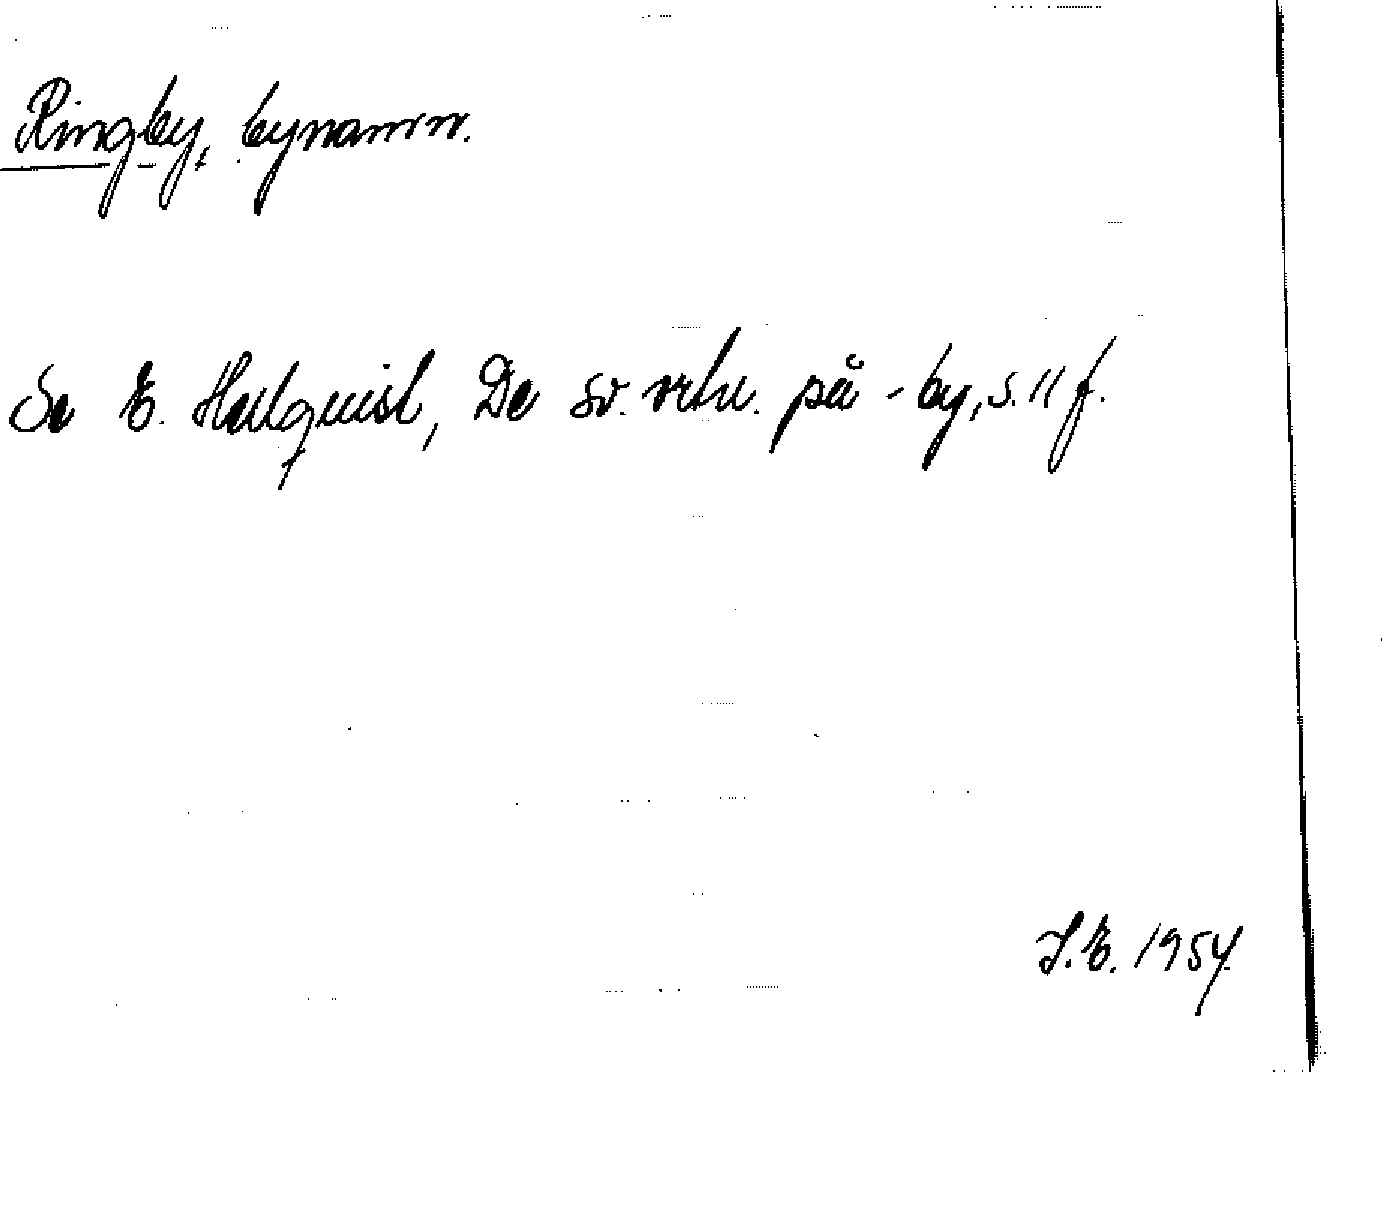 Ringby, bynamn.
Se E. Hellquist, De sv. ortn. på -by, s. 11 f.
I.E. 1954